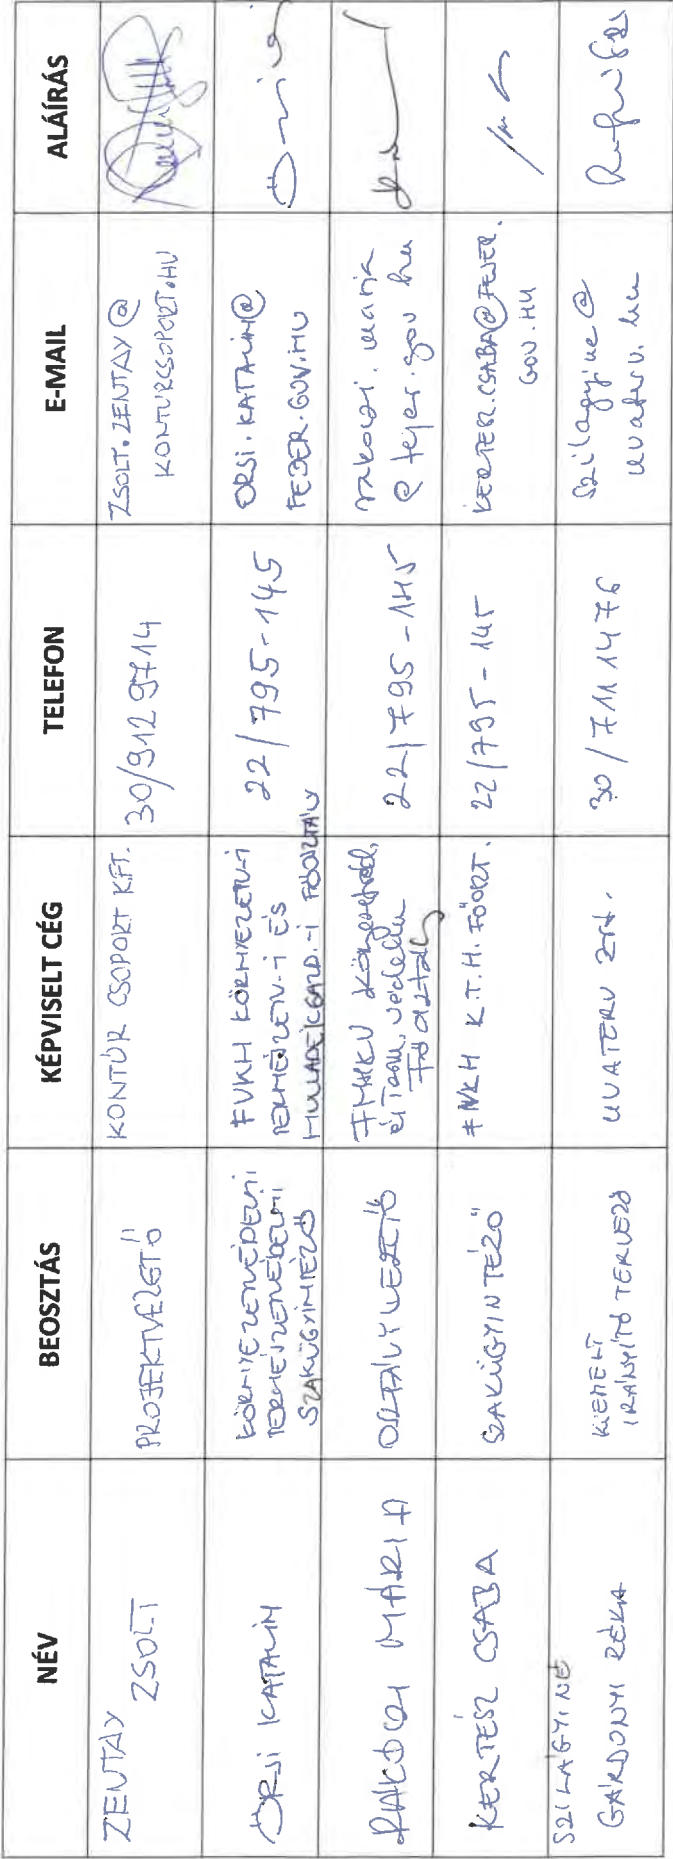 NÉV BEOSZTÁS KÉPVISELT CÉG TELEFON E-MAIL ALÁÍRÁS
ZENTAY
ZSOLT
PROJEKTVEZETŐ
KONTÚR CSOPORT KFT.
30/9129714
ZSOLT.ZENTAY@
KONTURCSOPORT.HU
ÖRSI KATALIN
KÖRNYEZETVÉDELMI
TERMÉSZETVÉDELMI
SZAKÜGYINTÉZŐ
FVKH KÖRNYEZETV-I
TERMÉSZETV-I ÉS
HULLADÉKGAZD.-I FŐOSZTÁLY
22/795-145
ORSI.KATALIN@
FEJER.GOV.HU
RÁKÓCZI MÁRIA
OSZTÁLYVEZETŐ
Főosztály
22/795-145
rakoczi.maria
@fejer.gov.hu
KERTÉSZ CSABA
SZAKÜGYINTÉZŐ
K.T.H. FŐOSZT.
22/795-145
KERTESZ.CSABA@FEJER.
GOV.HU
SZILÁGYINÉ
GÁRDONYI RÉKA
KIEMELT
IRÁNYÍTÓ TERVEZŐ
UVATERV Zrt.
30/7111476
szilagyine@
uvaterv.hu